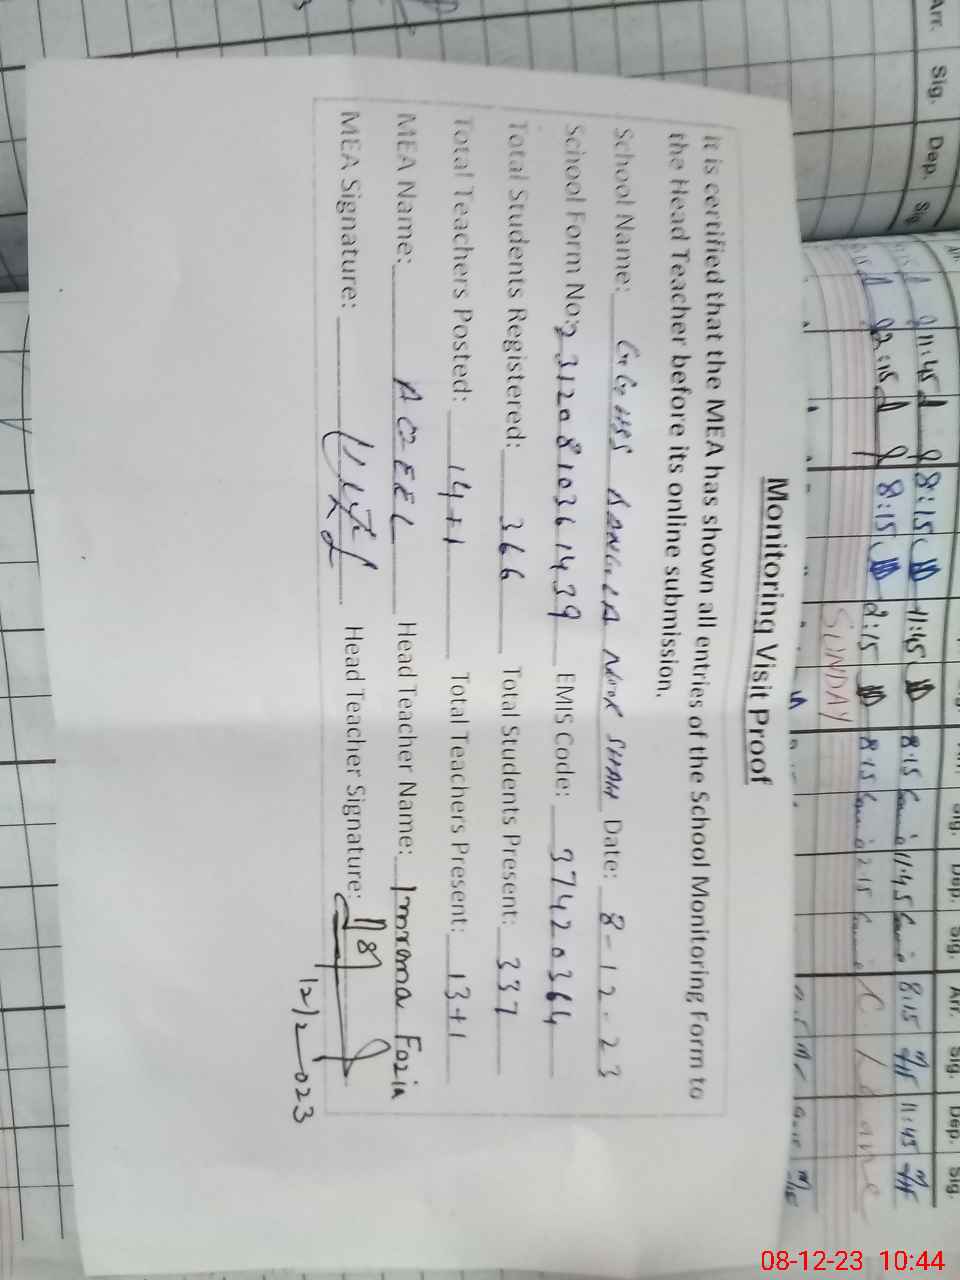 Monitoring Visit Proof
It is certified that the MEA has shown all entries of the School Monitoring Form to
the Head Teacher before its online submission.
School Name: GGHSS NOOR SHAH Date: 8-12-23
School Form No: 23120810361439 EMIS Code: 37420364
Total Students Registered: 366 Total Students Present: 337
Total Teachers Posted: 14+1 Total Teachers Present: 13+1
MEA Name: AQEEL Head Teacher Name: Fozia
MEA Signature: Head Teacher Signature:
8/12/2023
Arr. Sig. Dep. Sig.
Sig. Dep. Sig. Arr. Sig. Dep. Sig.
11:45 8:15 11:45 8:15 11:45 8:15 11:45
2:15 8:15 2:15 8:15 2:15
SUNDAY
08-12-23 10:44